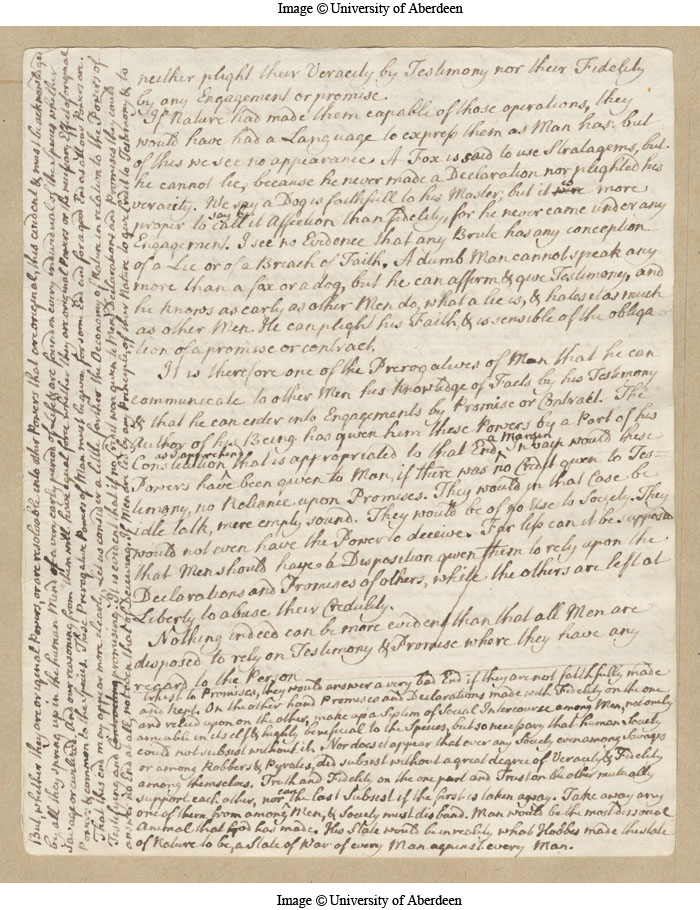 Image © University of Aberdeen
neither plight their Veracity by Testimony nor their Fidelity
by any Engagement or promise.
If Nature had made them capable of those operations, they
would have had a Language to express them as Man has: but
of this we see no appearance. A Fox is said to use Stratagems, but
he cannot lie, because he never made a Declaration nor plighted his
veracity. We say a Dog is faithfull to his Master; but it is more
proper to call it Affection than fidelity, for he never came under any
Engagement. I see no Evidence that any Brute has any conception
of a Lie or of a Breach of Faith. A dumb Man cannot speak any
more than a fox or a dog, but he can affirm & give Testimony, and
he knows as early as other Men do, what a lie is, & hates it as much
as other Men. He can plight his Faith, & is sensible of the obliga
tion of a promise or contract.
It is therefore one of the Prerogatives of Man that he can
communicate to other Men his knowledge of Facts by his Testimony
& that he can enter into Engagements by Promise or Contract. The
Author of his Being has given him these Powers by a Part of his
Constitution that is appropriated to that End
Powers have been given to Man, if there was no Credit given to Tes-
timony, no Reliance upon Promises. They would in that Case be
idle talk, mere empty sound. They would be of no Use to Society. They
would not even have the Power to deceive. Far less can it be supposed
that Men should have a Disposition given them to rely upon the
Declarations and Promises of others, while the others are left at
Liberty to abuse their Credulity.
Nothing indeed can be more evident than that all Men are
disposed to rely on Testimony & Promise where they have any
regard to the Person
As to Promises, they would answer a very bad End if they are not faithfully made
and kept. On the other hand Promises and Declarations made with Fidelity on the one
and relied upon on the other, make up a System of Social Intercourse among Men, not only
amiable in itself & highly beneficial to the Species, but so necessary that human Society
could not subsist without it. Nor does it appear that ever any Society even among Savages
or among Robbers & Pyrates, did subsist without a great degree of Veracity & Fidelity
among themselves. Truth and Fidelity on the one part and Trust on the other mutually
support each other, nor can the last Subsist if the first is taken away. Take away any
one of them from among Men, & Society must disband. Man would be the most dissocial
Animal that God has made. His State would be in reality what Hobbes made the state
of Nature to be, a State of War of every Man against every Man.
But whether they are original Powers, or are resolvable into other Powers that are original, this is evident & must be acknowledged
by all they spring up in the human Mind at a very early period of Life & are found in every individual of the species whether
Savage or civilized. And our reasoning from them will have equal force whether they are original Powers or the necessary Effect of original
Powers & common to the Species. These Prerogative Powers of Man must be given for some End and for a good End as all those Powers are.
That this end may appear more clearly Let us consider a little farther the Oeconomy of Nature in relation to the Powers of
Testifying and promising. It is evident that if no Regard were given to Mens Declarations and Promises they could
answer no End at all, not even that of deceiving. If Man had not been led by some Principle of their Nature to give Credit to Testimony & to
Image © University of Aberdeen